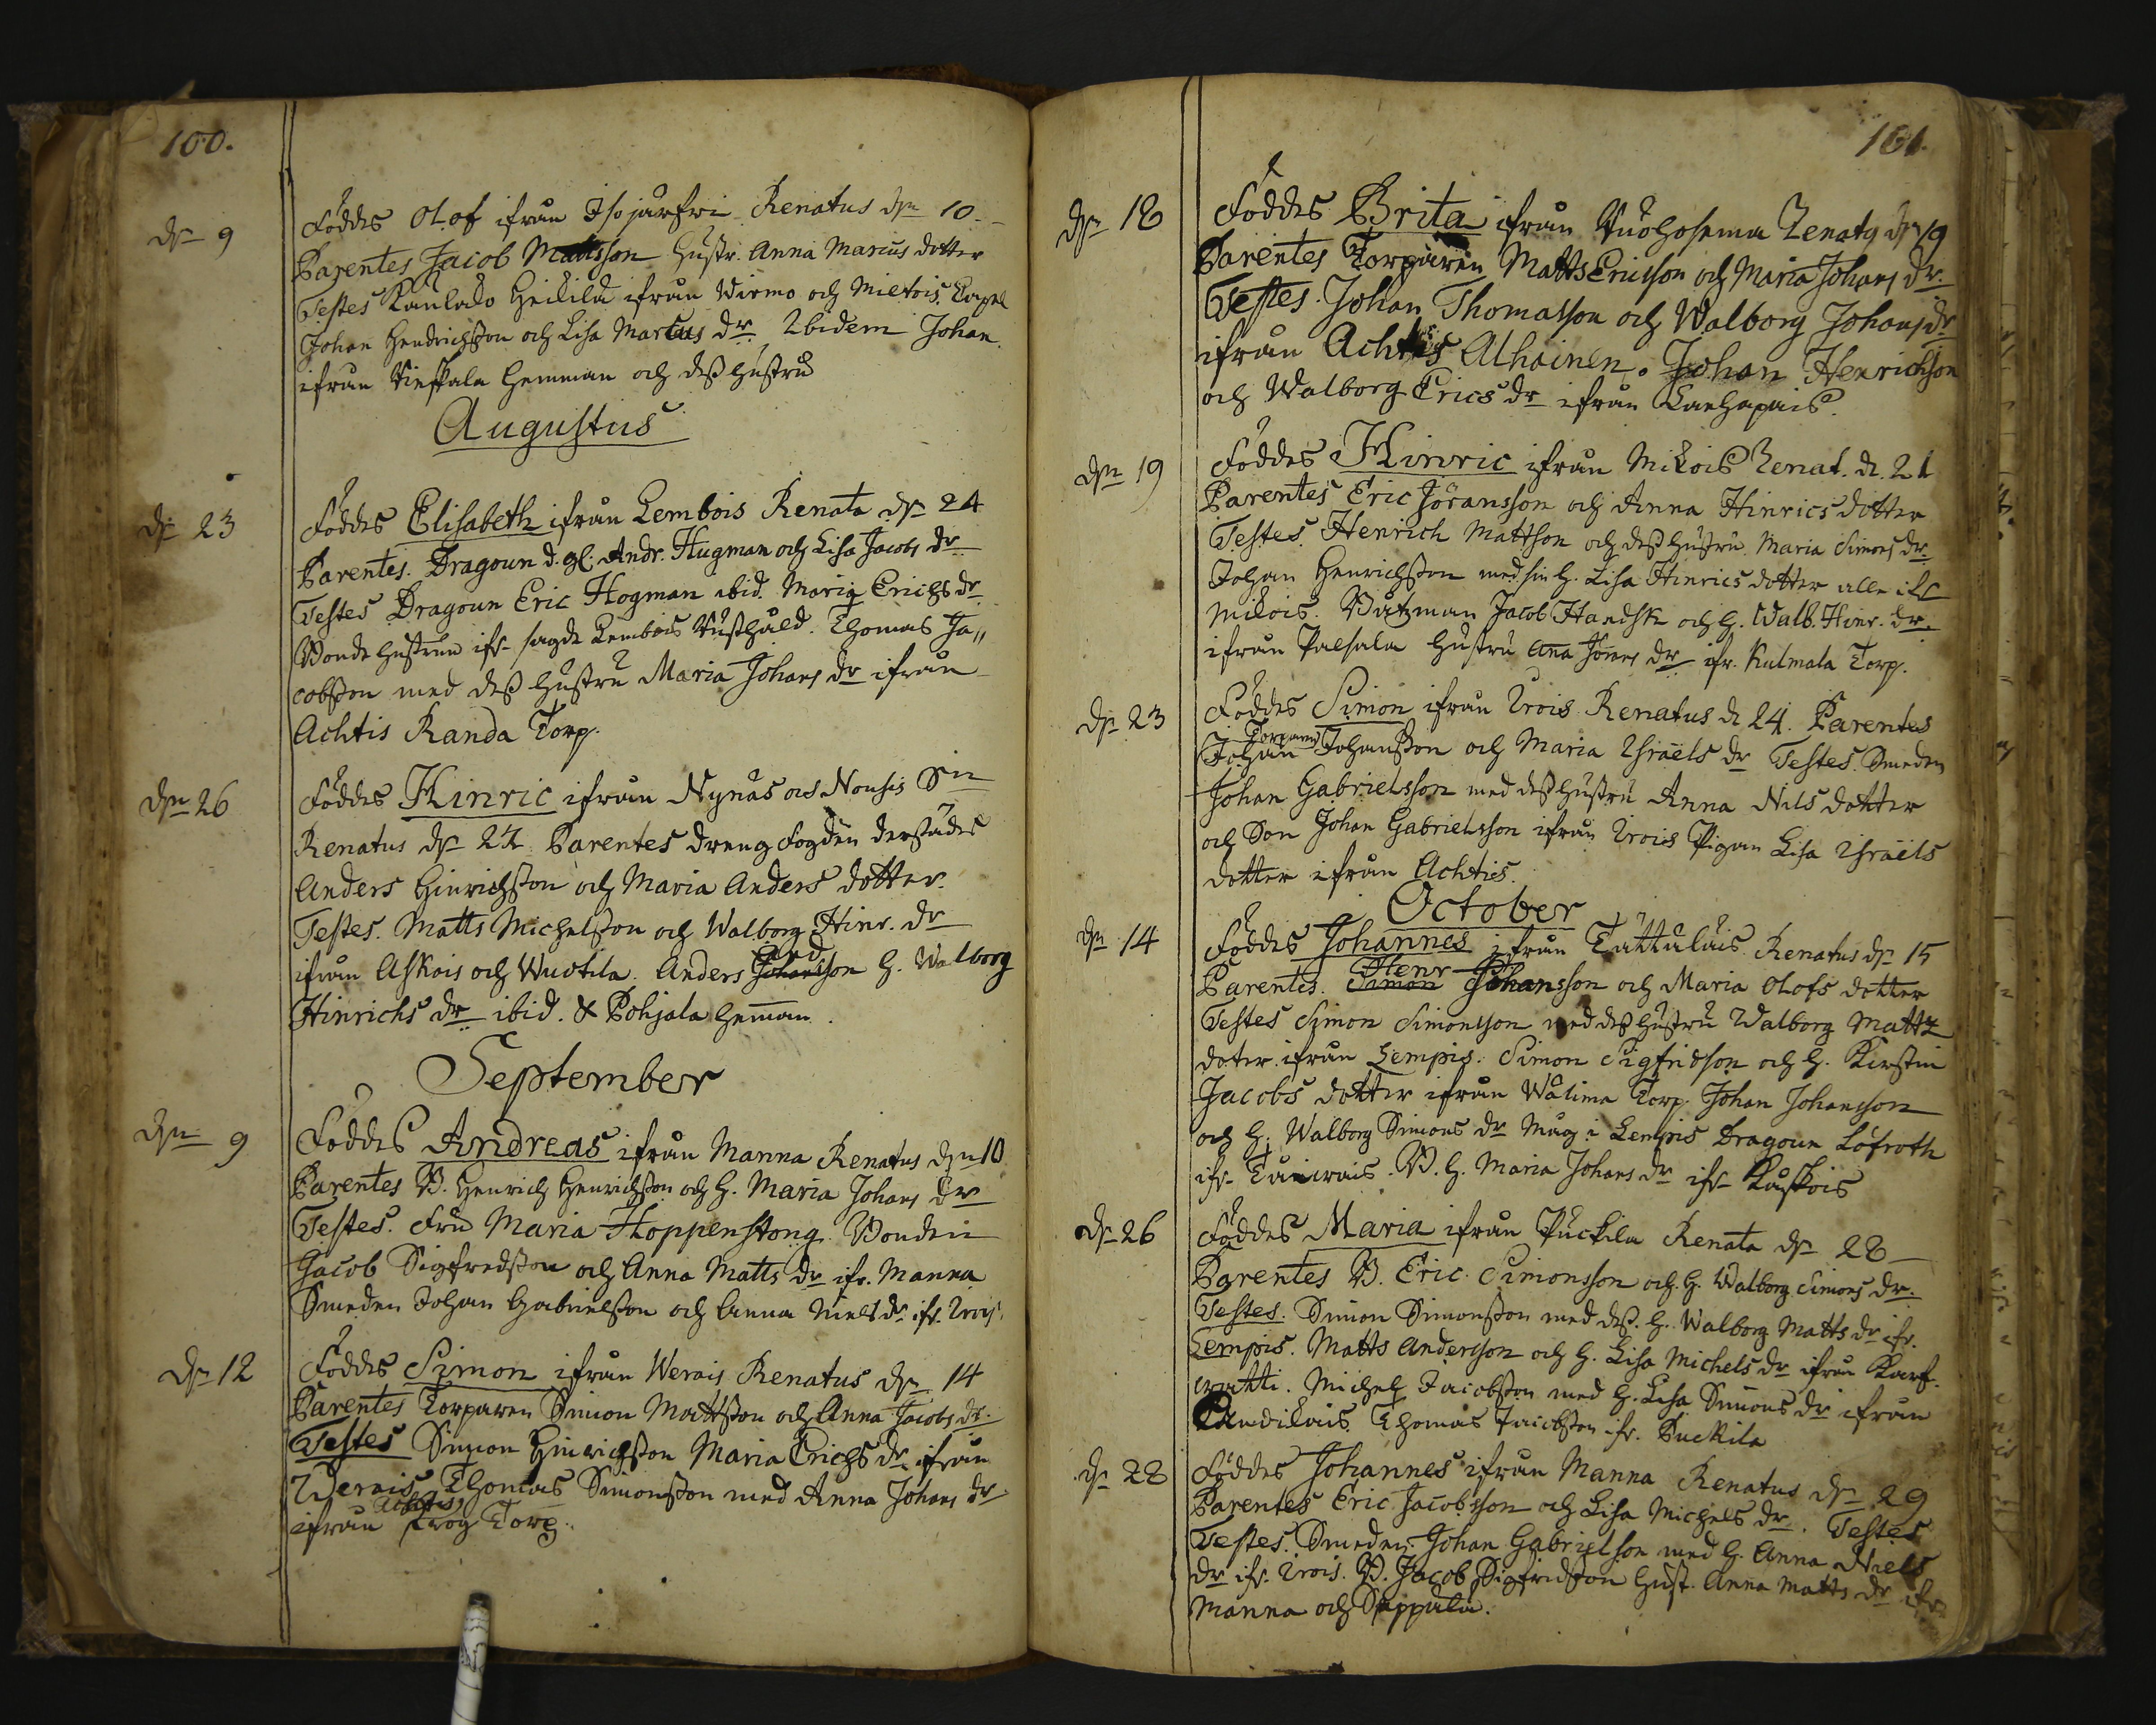 100.
dn 9 Föddes Olof ifrån Isojärfwi Renatus dn 10.
Parentes Jacob Mattsson Hustr. Anna Marcus dotter
Testes Heickilä ifrån Wirmo och Mietois Capel
Johan Hendrichsson och Lisa Marcus dr Ibidem Johan
ifrån Hemman och dess hustru
Augustus
dn 23 Föddes Elisabeth ifrån Lembois Renata dn 24
Parentes. Dragoun d. gl. Andr. Hugman och Lisa Jacobs dr
Testes Dragoun Eric Hogman ibid. Maria Erichs dr
Bonde hustrun ifr. sagde Lembois Rusthåld. Thomas Ja„
cobsson med dess hustru Maria Johans dr ifrån
Achtis Randa Torp.
dn 26 Föddes Hinric ifrån Nynäs och Nousis Sn
Renatus dn 27. Parentes dreng fogden derstädes
Anders Hinrichsson och Maria Anders dotter.
Testes. Matts Michelsson och Walborg Hinr. dr
And
ifrån Askois och Wuotila. Anders Johansson H. Walborg
Hinrichs dr ibid. & Pohjala Hemman.
September
dn 9 Föddes Andreas ifrån Manna Renatus dn 10
Parentes B. Henrich Henrichsson och H. Maria Johans dr
Testes. Fru Maria Hoppenstong. Bonden
Jacob Sigfredsson och Anna Matts dr ifr. Manna
Smeden Johan Gabrielsson och Anna Niels dr. ifr. Irois.
dn 12 Föddes Simon ifrån Werais Renatus dn 14
Parentes Torparen Simon Mattsson och Anna Jacobs dr.
Testes Simon Hinrichsson Maria Erichs dr ifrån
Werais Thomas Simonsson med Anna Johans dr
Achtis
ifrån Krog Torp.
101.
dn 18 Föddes Brita ifrån Renata dn 19
Parentes Torparen Matts Ericsson och Maria Johans dr.
Testes. Johan Thomasson och Walborg Johans dr
ifrån Achtis Alhainen. Johan Henrichson
och Walborg Erics dr ifrån Lanhapais.
dn 19 Föddes Hinric ifrån Mikois Renat. d. 21
Parentes Eric Jöransson och Anna Hinrics dotter
Testes. Henrich Mattson och dess hustru Maria Simons dr
Johan Henrichsson med sin H. Lisa Hinrics dotter alle ifr
Mikois. Båtzman Jacob Handsk och H. Walb. Hinr. dr.
ifrån Palsala hustru Ana Jörans dr ifr. Kulmala Torp.
dn 23 Föddes Simon ifrån Irois Renatus d 24. Parentes
Torparen
Johan Johansson och Maria Israëls dr Testes. Smeden
Johan Gabrielsson med dess hustru Anna Nils dotter
och Son Johan Gabrielsson ifrån Irois Pigan Lisa Israëls
dotter ifrån Achtis.
October
dn 14 Föddes Johannes ifrån Tattulais Renatus dn 15
Henr
Parentes. Simon Johansson och Maria Olofs dotter
Testes Simon Simonsson med dess hustru Walborg Matts
doter ifrån Lempis. Simon Sigfridson och H. Kirstin
Jacobs dotter ifrån Wälima Torp. Johan Johansson
och H. Walborg Simons dr Måg i Lempis Dragoun Löfroth
ifr. Tuiwais. B. H. Maria Johans dr ifr. Kåskois
dn 26 Föddes Maria ifrån Puckila Renata dn 28
Parentes B. Eric Simonsson och H. Walborg Simons dr.
Testes. Simon Simonsson med dess H. Walborg Matts dr ifr.
Lempis. Matts Andersson och H. Lisa Michels dr ifrån Karf-
watti. Michel Jacobsson med H. Lisa Simons dr ifrån
Thomas Jacobsson ifr. Puckila
dn 28 Föddes Johannes ifrån Manna Renatus dn 29
Parentes Eric Jacobsson och Lisa Michels dr. Testes
Testes. Smeden Johan Gabrielson med H. Anna Niels
dr ifr. Irois. B. Jacob Sigfridsson hust. Anna Matts dr ifr
Manna och Seppälä.